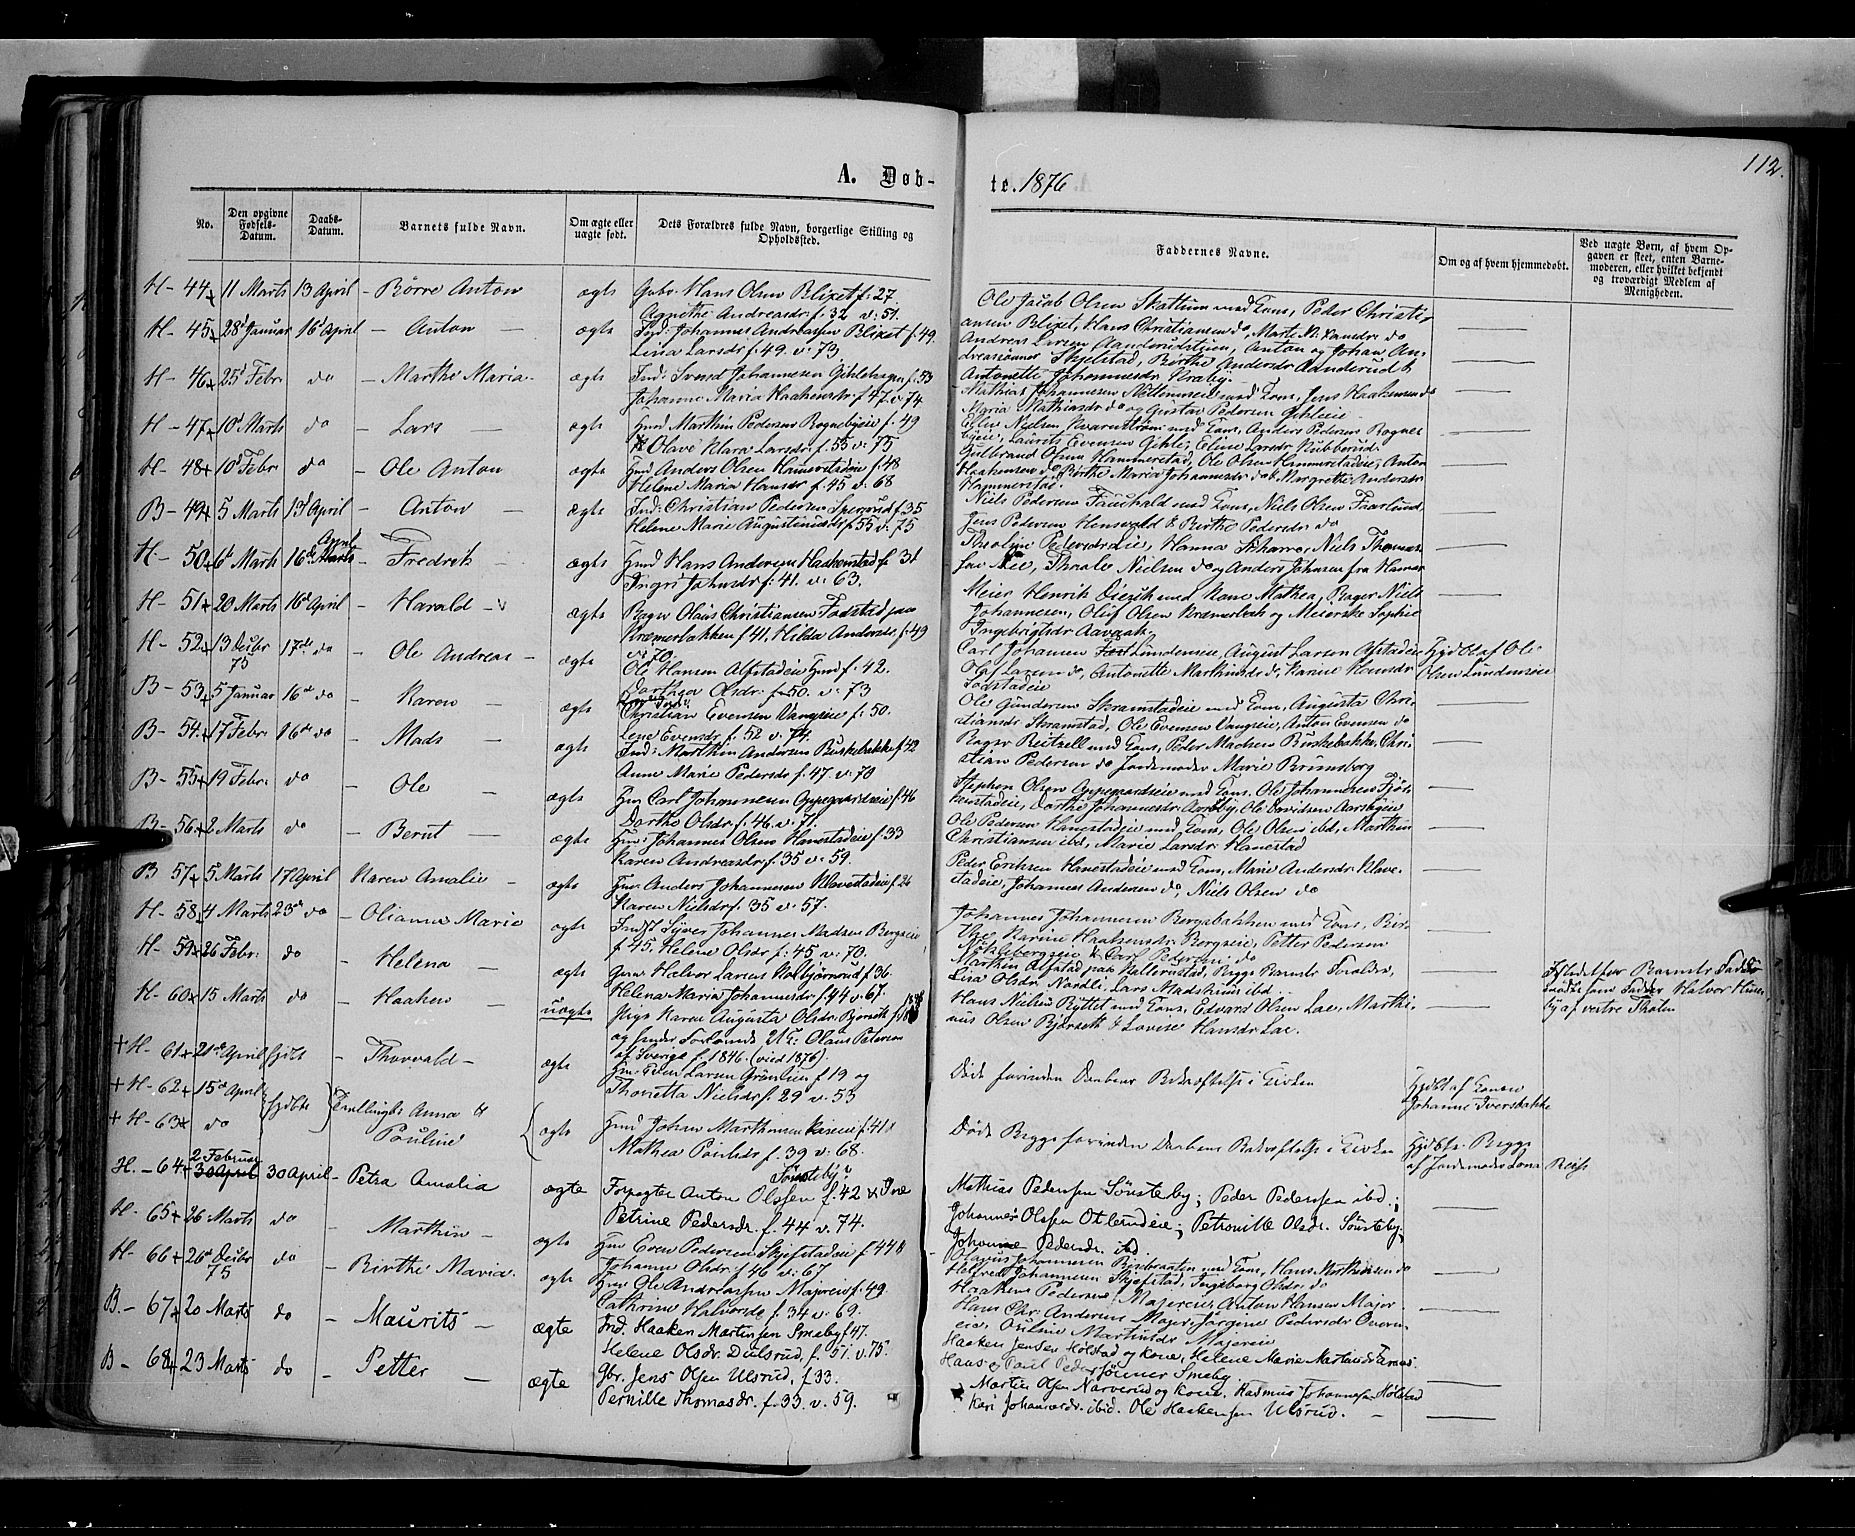 112.
A. Døb-
te. 1876
No.
Den opgivne Fødsels-Datum.
Daabs-Datum.
Barnets fulde Navn.
Om ægte eller uægte født.
Dets Forældres fulde Navn, borgerlige Stilling og Opholdssted.
Faddernes Navne.
Om og af hvem hjemmedøbt.
Ved uægte Børn, af hvem Opgaven er skeet, enten Barnemoderen, eller hvilket bekjendt og troværdigt Medlem af Menigheden.
H- 44 11 Marts 13 April - Børre Anton ægte Gbr. Hans Olsen Blixet f: 27.
Agnethe Andreasdr f: 32 v: 51.
Ole Jacob Olsen Skattum med Kone, Peder Christi-
ansen Blixet, Hans Christiansen do, Marte
H- 45 28 Januar 16 April - Anton - ægte Ind: Johannes Andreassen Blixet f: 49.
Lina Larsdr f: 49. v: 73
Andreas Larsen Aanderudstuen, Anton og Johan An-
dreassønner Skjelstad, Birthe Andersdr Aanderud &
Antonette Johannesdr Kraby
H- 46 25 Febr. do - Marthe Maria - ægte Ind: Svend Johannesen Gihlehagen f: 53
Johanne Maria Haakensdr f: 47. v: 74
Mathias Johannesen med Kone, Jens Haakensen do
Maria Mathiasdr do og Gustav Pedersen Gihleie
H- 47 10 Marts do - Lars - ægte Hmd Marthin Pedersen Rognebyeie f. 49
Olave Klara Larsdr f: 55 v: 75
Nielsen Kvarnstrøm med Kone, Anders Pedersen Rogne-
byeie, Laurits Evensen Gihle, Eline Larsdr Kubberud
H- 48 10 Febr do - Ole Anton ægte Hmd Anders Olsen Hammerstadeie f. 48
Helene Maria Hansdr f. 45 v: 68
Gulbrand Olsen Hammerstad, Ole Olsen Hammerstadeie, Anton
Haakensen do, Birthe Maria Johannesdr do & Margrethe Andersdr
Hammerstad.
B- 49 5 Marts 13 April - Anton - ægte Ind: Christian Pedersen Sperrud f. 35
Helene Marie Augustinusdr f 55 v: 75
Niels Pedersen Fauchald med Kone, Niels Olsen Faarlund,
Jens Pedersen Hensvold & Birthe Pedersdr do
H- 50 6 Marts 16 April - Fredrik - ægte Hmd Hans Andersen Haakenstad f. 31
Ingri Johnsdr f: 41. v: 63.
Theoline Pedersdr Lie, Hanna Scharre, Niels Thomas-
sen Lie, Thrale Nielsen do og Anders Johnsen fra Hamar
H- 51 20 Marts 16 April - Harald - ægte Bager Olaus Christiansen Fodstad paa
Kræmerbakken f 41, Hilda Andersdr f: 49
v: 70.
Meier Henrik med Kone Mathea, Bager Niels
Johannesen, Oluf Olsen Kræmerbak og Meierske Sophie
Ingebrigtsdr Aavaak
H- 52 13 Decbr 75 17de do - Ole Andreas - ægte Ole Hansen Alfstadeie Hmd f. 42.
Olsdr f. 50. v: 73
Carl Johannesen Lundenseie, August Larsen Alfstadeie
Olaf Larsen do, Antonette Marthinusdr do, Karine Hansdr
Fodstadeie
Hjdbt af Ole
Olsen Lundenseie
B- 53 5 Januar 16 do - Karen - ægte Christian Evensen Vangseie f: 50.
Lene Evensdr f. 52 v. 74.
Ole Gundersen Skramstadeie med Kone, Augusta Chri-
stiansdr Skramstad, Ole Evensen Vangseie, Anton Evensen do
B- 54 17 Febr. 16 do - Mads - ægte Ind: Marthin Andersen Birkebakke f. 42
Anne Marie Pedersdr f. 47. v: 70
Bager Reitzell med Kone, Peder Madsen Birkebakke, Chri-
stian Pedersen do Jordemoder Marie Brumsborg
B- 55 19 Febr. do - Ole - ægte Hmd Carl Johannesen Oppegaardseie f. 46
Dorthe Olsdr. f. 46. v: 71.
Stephen Olsen Oppegaardseie med Kone, Ole Johannesen Fjør-
kenstadeie, Dorthe Johannesdr Aarsby, Ole Davidsen Aarsbyeie
B- 56 2 Marts do - Bernt - ægte Hmd: Johannes Olsen Hanestadeie f. 33
Karen Andreasdr f. 35 v: 59.
Ole Pedersen Hanestadeie med Kone, Ole Olsen ibd, Marthin
Christiansen ibd, Marie Larsdr Hanestad
B 57 5 Marts 17 April Karen Amalie - ægte Hmd: Anders Johannesen Klavestadeie f. 26
Karen Nielsdr f. 35 v: 57.
Peder Eriksen Hanestadeie med Kone, Marie Andersdr Klave-
stadeie, Johannes Andersen do, Niels Olsen do
H- 58 4 Marts 23 do - Olianna Marie ægte Syver Johannes Madsen Bergseie
f. 45. Helene Olsdr f. 45 v. 70.
Johannes Johannesen Bergsbakken med Kone, Bir-
the Karine Haakensdr Bergseie, Petter Pedersen
& Carl Pedersen do
H- 59 26 Febr. do - Helena - ægte Gmd. Halvor Larsen Kolbjørnrud f. 36.
Helena Maria Johannesdr f. 44 v. 67.
Marthin Alfstad paa Kellerustad, Begge Barnets Forældre,
Lisa Olsdr Nordli, Lars Madshuus ibd
Istedetfor Barnets Fader
mødte som Fadder Halvor Huse-
by af vestre Thoten
H- 60 15 Marts do - Haaken - uægte Pige Karen Augusta Olsdr Bjørseth f.
og Olaus Peterson
af Sverige f. 1846. (viet 1876).
Hans Nielsen Ryttet med Kone, Edvard Olsen Lae, Marthi-
nus Olsen Bjørseth & Lovise Hansdr Lae.
+H- 61 21de April hjdbt - Thorvald - ægte Hmd: Even Larsen Grønlien f 19 og
Thonetta Nielsdr f. 29 v. 53
Døde forinden Daabens Bekræftelse i Kirken
Hjdbt af Konen
Johanne Iversbakke
+H- 62 15 April hjdbte Tvillinger Anna &
+H- 63 do Pauline ægte Hmd Johan Marthinsen f. 41
Mathea Paulsdr f. 39 v. 68.
Døde Begge forinden Daabens Bekræftelse i Kirken
Hjdbte Begge
af Jordemoder Lena Reis
H.- 64 2 Februar 30 April 30 April - Petra Amalia ægte Forpagter Anton Olssen Sønsteby f. 42
Petrine Pedersdr. f. 44 v. 74.
Mathias Pederssen Sønsteby; Peder Pederssen ibd.;
Johannes Olssen Otlerudeie; Petronille Olsdr. Sønsteby
Johanne Pedersdr. ibd.
H- 65 26 Marts do - Marthin - ægte Hmd Even Pedersen Skjefstadeie f 44 &
Johanne Olsdr. f 46 v: 67
Olaves Johannesen Bisibraaten med Kone, Hans Marthinsen do
Helfred Johannesen Skjefstad, Ingeborg Olsdr. do
H- 66 26 Decbr 75 do - Birthe Maria. ægte Hmd Ole Andreassen Majereie f. 49.
Cathrine Halvorsdr f. 34 v. 69.
Haaken Pedersen Majereie, Anton Hansen Majer-
Hans Chr. Andersen Majer, Jørgine Pedersdr Overn-
eie, Pauline Martinsdr Majereie
B.- 67 20 Marts do - Maurits - ægte Ind. Haaken Martinsen Smeby f 47.
Helene Olsdr. Dulsrud, f. 51. v. 75.
Haaken Jensen Hølstad og kone, Helene Marie Martinsdr Farnes.
Hans & Paul Pederssønner Smeby
B- 68 23 Marts do - Petter - ægte Gbr. Jens Olsen Ulsrud. f 33.
Pernille Thomasdr. f. 33. v. 59.
Martin Olsen Narverud og Kone. Rasmus Johannessen Hølstad
Kari Johannesdr. ibid. Ole Haakensen Ulsrud. -